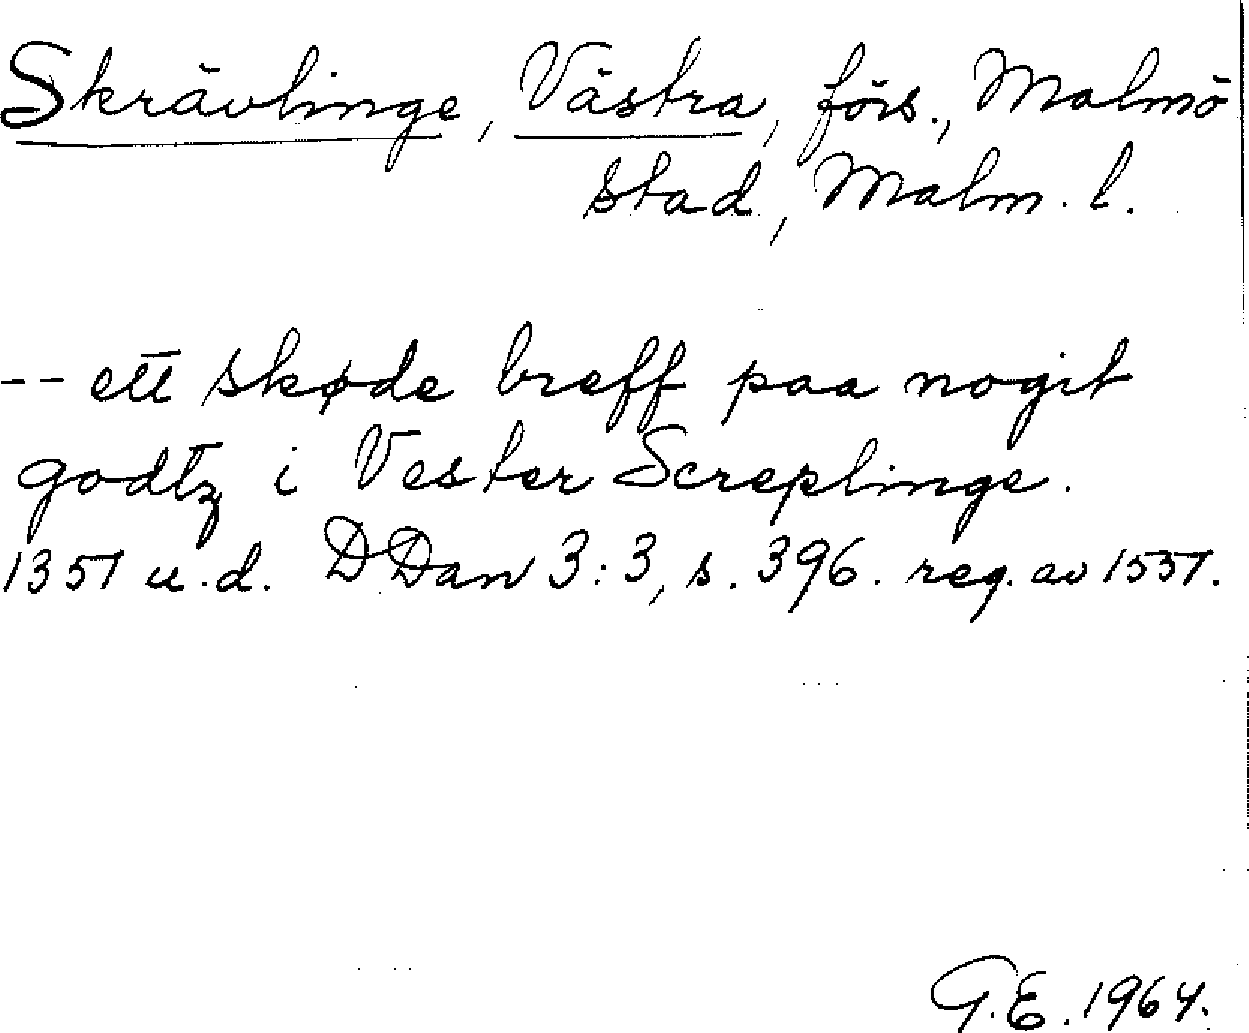 Skrävlinge, Västra, förs., Malmö
stad, Malm. l.
-- ett skøde breff paa nogit
godtz i Vester Screplinge.
1351 u.d. DDan 3:3, s. 396. reg. av 1551.
G.E. 1964.